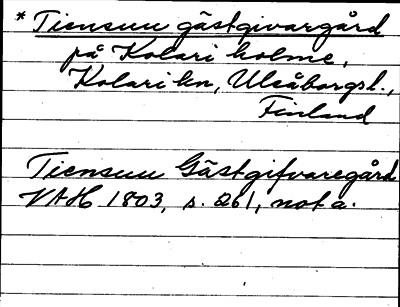 * Tiensuu gästgivargård
på Kolari holme,
Kolari kn, Uleåborgsl.,
Finland
Tiensuu Gästgifvaregård
VAH 1803, s. 261, nota.